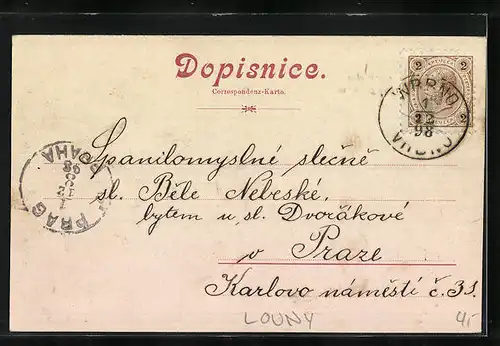 Dopisnice.
Correspondenz-Karte.
2 2
WRBNO
1
12
98
VRBNO
PRAG PRAHA
Spanilomyslné slečně
sl. Běle Nebeské,
bytem u sl. Dvořákové
v Praze
Karlovo náměstí č. 31.
LOUNY